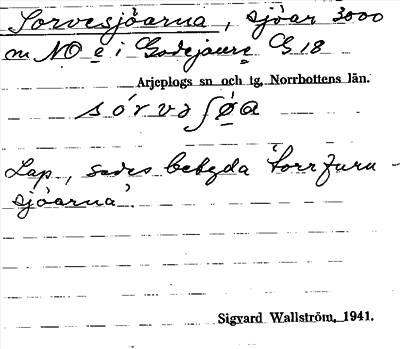 Sorvesjöarna, sjöar 3000
m NO e i Godejaure G 18
Arjeplogs sn och tg, Norrbottens län.
sórvəʃøa
Lap, sades betyda 'torrfuru-
sjöarna'.
Sigvard Wallström, 1941.